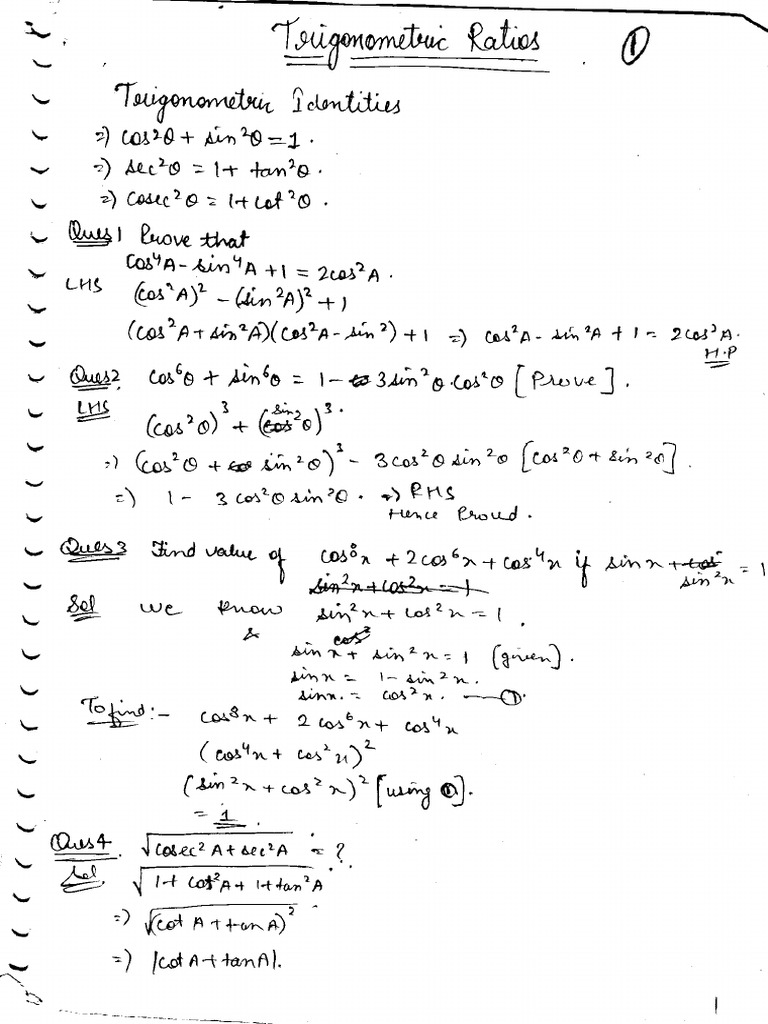 Trigonometric Ratios ①
Trigonometric Identities
⇒) cos²θ + sin²θ = 1.
⇒) sec²θ = 1 + tan²θ.
⇒) cosec²θ = 1 + cot²θ.
Ques1 Prove that
cos⁴A - sin⁴A + 1 = 2cos²A.
LHS (cos²A)² - (sin²A)² + 1
(cos²A + sin²A)(cos²A - sin²) + 1 ⇒) cos²A - sin²A + 1 = 2cos²A.
H.P
Ques2. cos⁶θ + sin⁶θ = 1 - 3sin²θ.cos²θ [Prove].
LHS
(cos²θ)³ + (sin²θ)³.
⇒) (cos²θ + sin²θ)³ - 3cos²θ sin²θ [cos²θ + sin²θ].
⇒) 1 - 3cos²θ sin²θ. ⇒) RHS
Hence Proved.
Ques3 Find value of cos⁸x + 2cos⁶x + cos⁴x if sinx + sin²x = 1
sin²x + cos²x = 1
Sol We know sin²x + cos²x = 1.
&
sinx + sin²x = 1 (given).
sinx = 1 - sin²x.
sinx. = cos²x. —①.
To find:- cos⁸x + 2cos⁶x + cos⁴x
(cos⁴x + cos²x)²
(sin²x + cos²x)² [using ①].
= 1.
Ques4. √cosec²A + sec²A = ?
Sol. √1 + cot²A + 1 + tan²A
⇒) √(cot A + tan A)²
⇒) |cot A + tan A|.
1